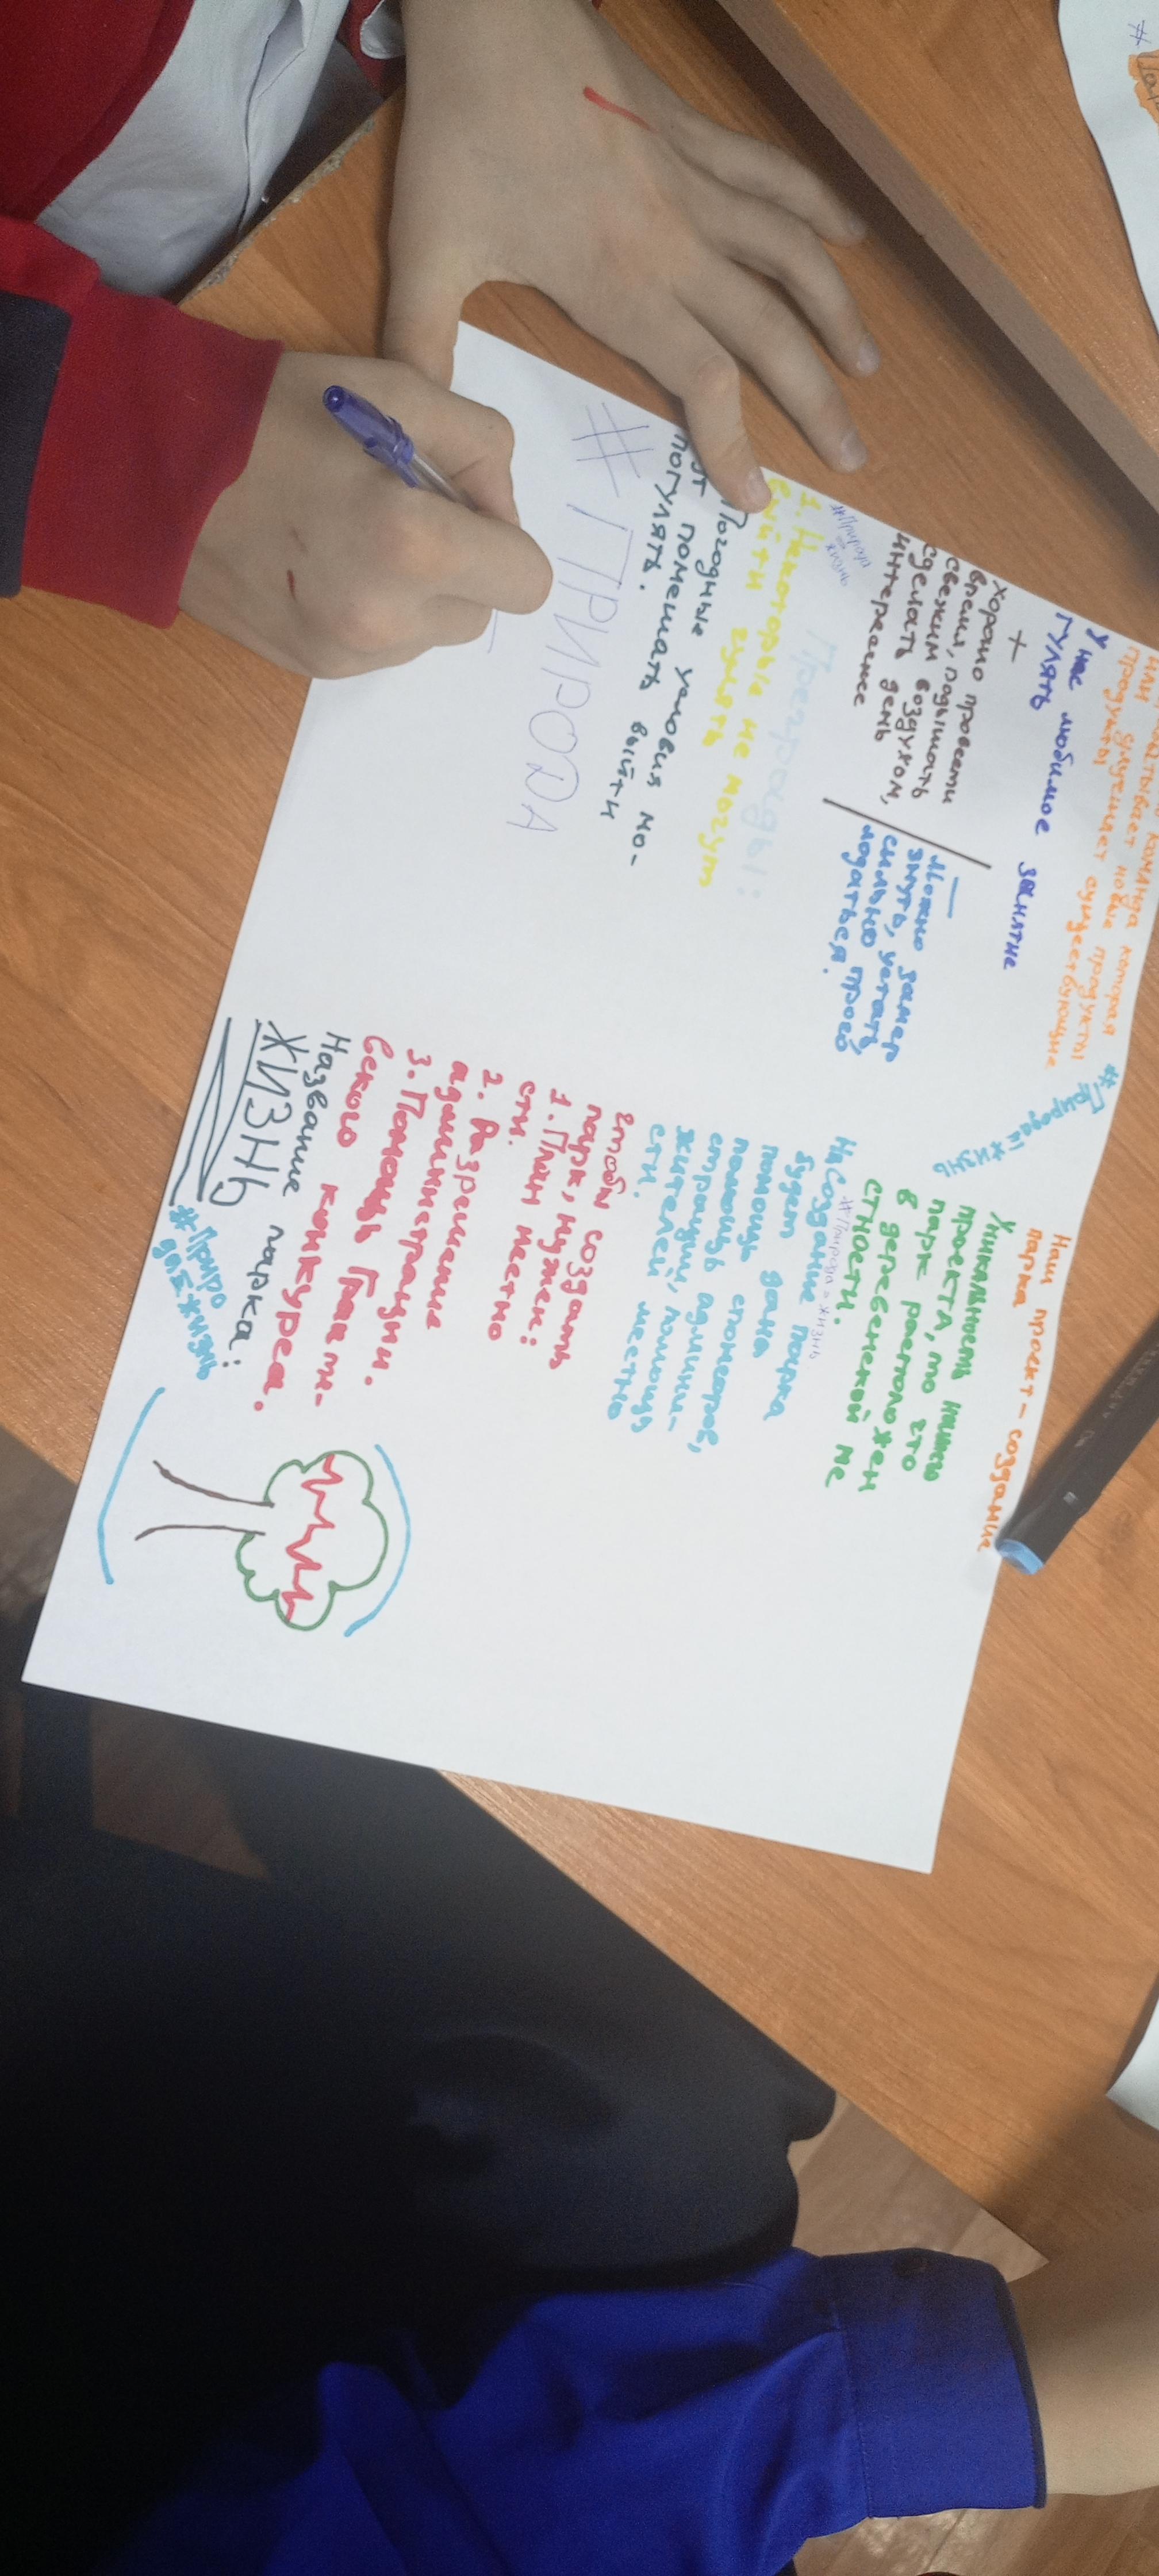 команда которая
или придумывает новые продукты
или улучшает существующие
продукты
У нас любимое занятие
гулять
+
хорошо провести
время, подышать
свежим воздухом,
сделать день
интереснее
—
Можно замёр
знуть, устать,
сильно прого
лодаться.
#Природа
=
жизнь
Преграды:
1. Некоторые не могут
выйти гулять
Погодные условия мо-
гут помешать выйти
погулять.
# ПРИРОДА
=
#Природа=жизнь
Наш проект – создание
парка
Уникальность нашего
проекта, то что
парк расположен
в деревенской ме
стности.
#Природа=жизнь
На создание парка
будет дана
помощь спонсоров,
помощь админи-
страции, помощь
жителей местно
сти.
Чтобы создать
парк, нужен:
1. План местно
сти.
2. Разрешение
администрации.
3. Помощь Грант-
вского конкурса.
Название парка:
ЖИЗНЬ
#Приро
да=жизнь